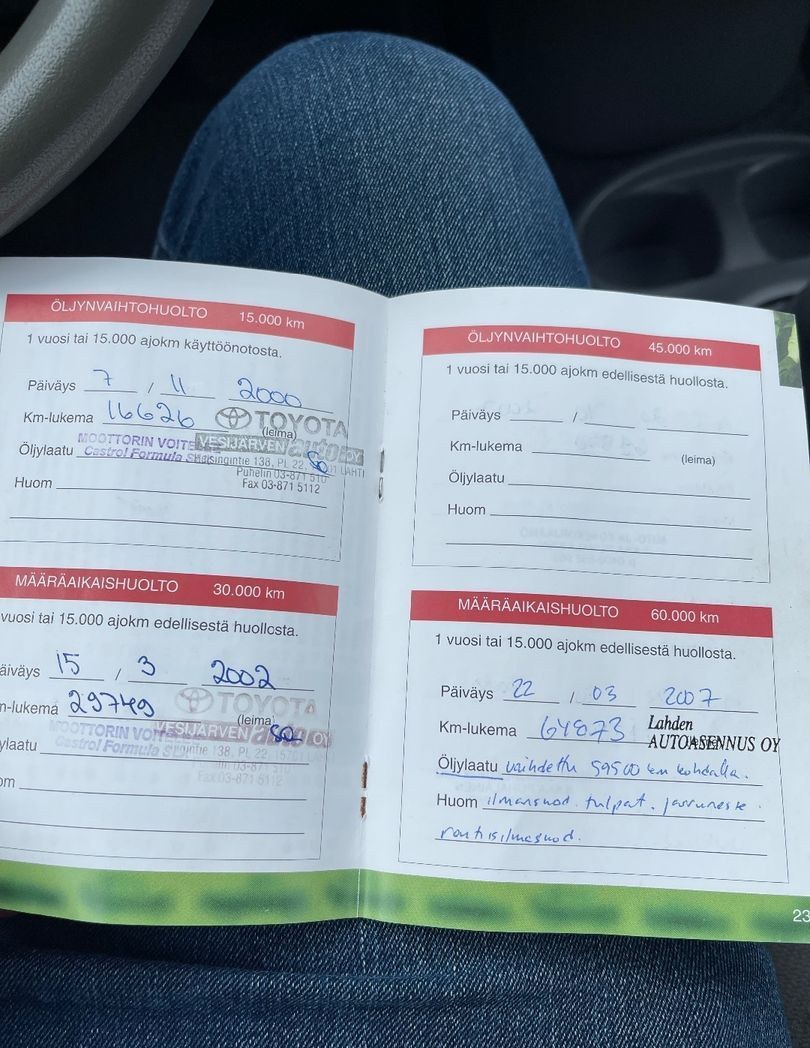 ÖLJYNVAIHTOHUOLTO 15.000 km
1 vuosi tai 15.000 ajokm käyttöönotosta.
Päiväys 7 / 11 2000
Km-lukema 16626
(leima)
TOYOTA
VESIJÄRVEN auto OY
138, PL 22,
LAHTI
Puhelin 03-871 510
Fax 03-871 5112
Öljylaatu MOOTTORIN
Castrol Formula
Huom
MÄÄRÄAIKAISHUOLTO 30.000 km
vuosi tai 15.000 ajokm edellisestä huollosta.
äiväys 15 / 3 2002
m-lukema 29749
(leima)
TOYOTA
VESIJÄRVEN auto OY
138, PL 22, 15701
03-871 510
Fax 03-871 5112
ylaatu MOOTTORIN
Castrol Formula SLX
om
ÖLJYNVAIHTOHUOLTO 45.000 km
1 vuosi tai 15.000 ajokm edellisestä huollosta.
Päiväys / 
Km-lukema
(leima)
Öljylaatu
Huom
MÄÄRÄAIKAISHUOLTO 60.000 km
1 vuosi tai 15.000 ajokm edellisestä huollosta.
Päiväys 22 / 03 2007
Km-lukema 64873
Lahden
AUTOASENNUS OY
Öljylaatu vaihdettu 59500 km kohdalla.
Huom ilmansuod. tulpat. jarruneste.
raitisilmasuod.
23